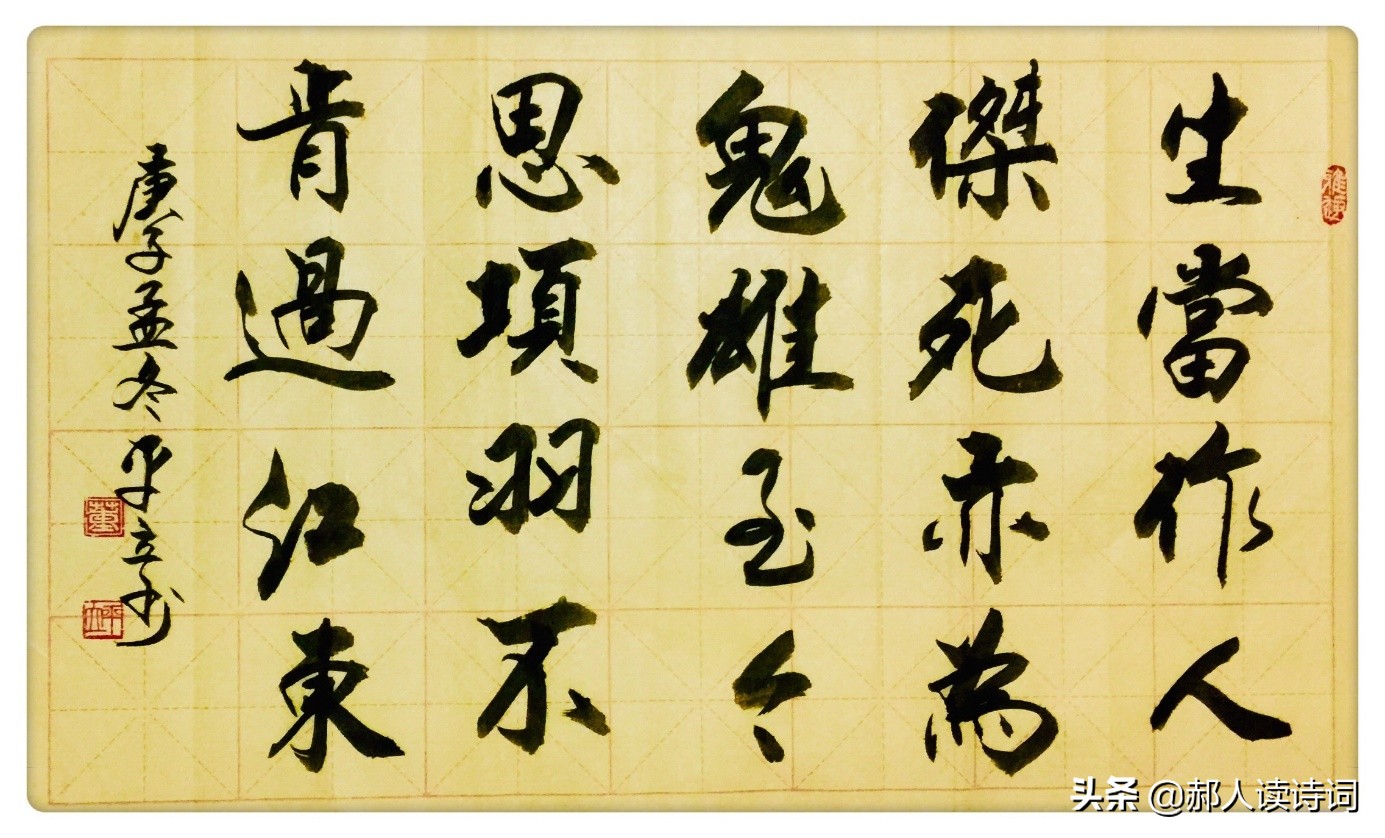 生當作人
傑死亦為
鬼雄至今
思項羽不
肯過江東
庚子孟冬平立書
董
平立
头条 @郝人读诗词